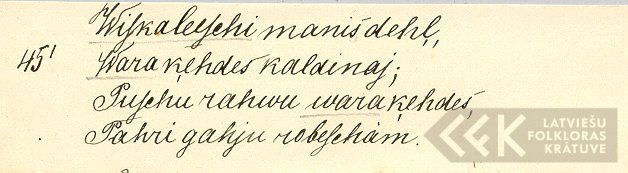 Wiſkaleſchi manis dehļ,
45¹ Wara ķehdes kaldinaj;
Puſchu rahwu wara ķehdes,
Pahri gahju robeſchàm.
LATVIEŠU
FOLKLORAS
KRĀTUVE